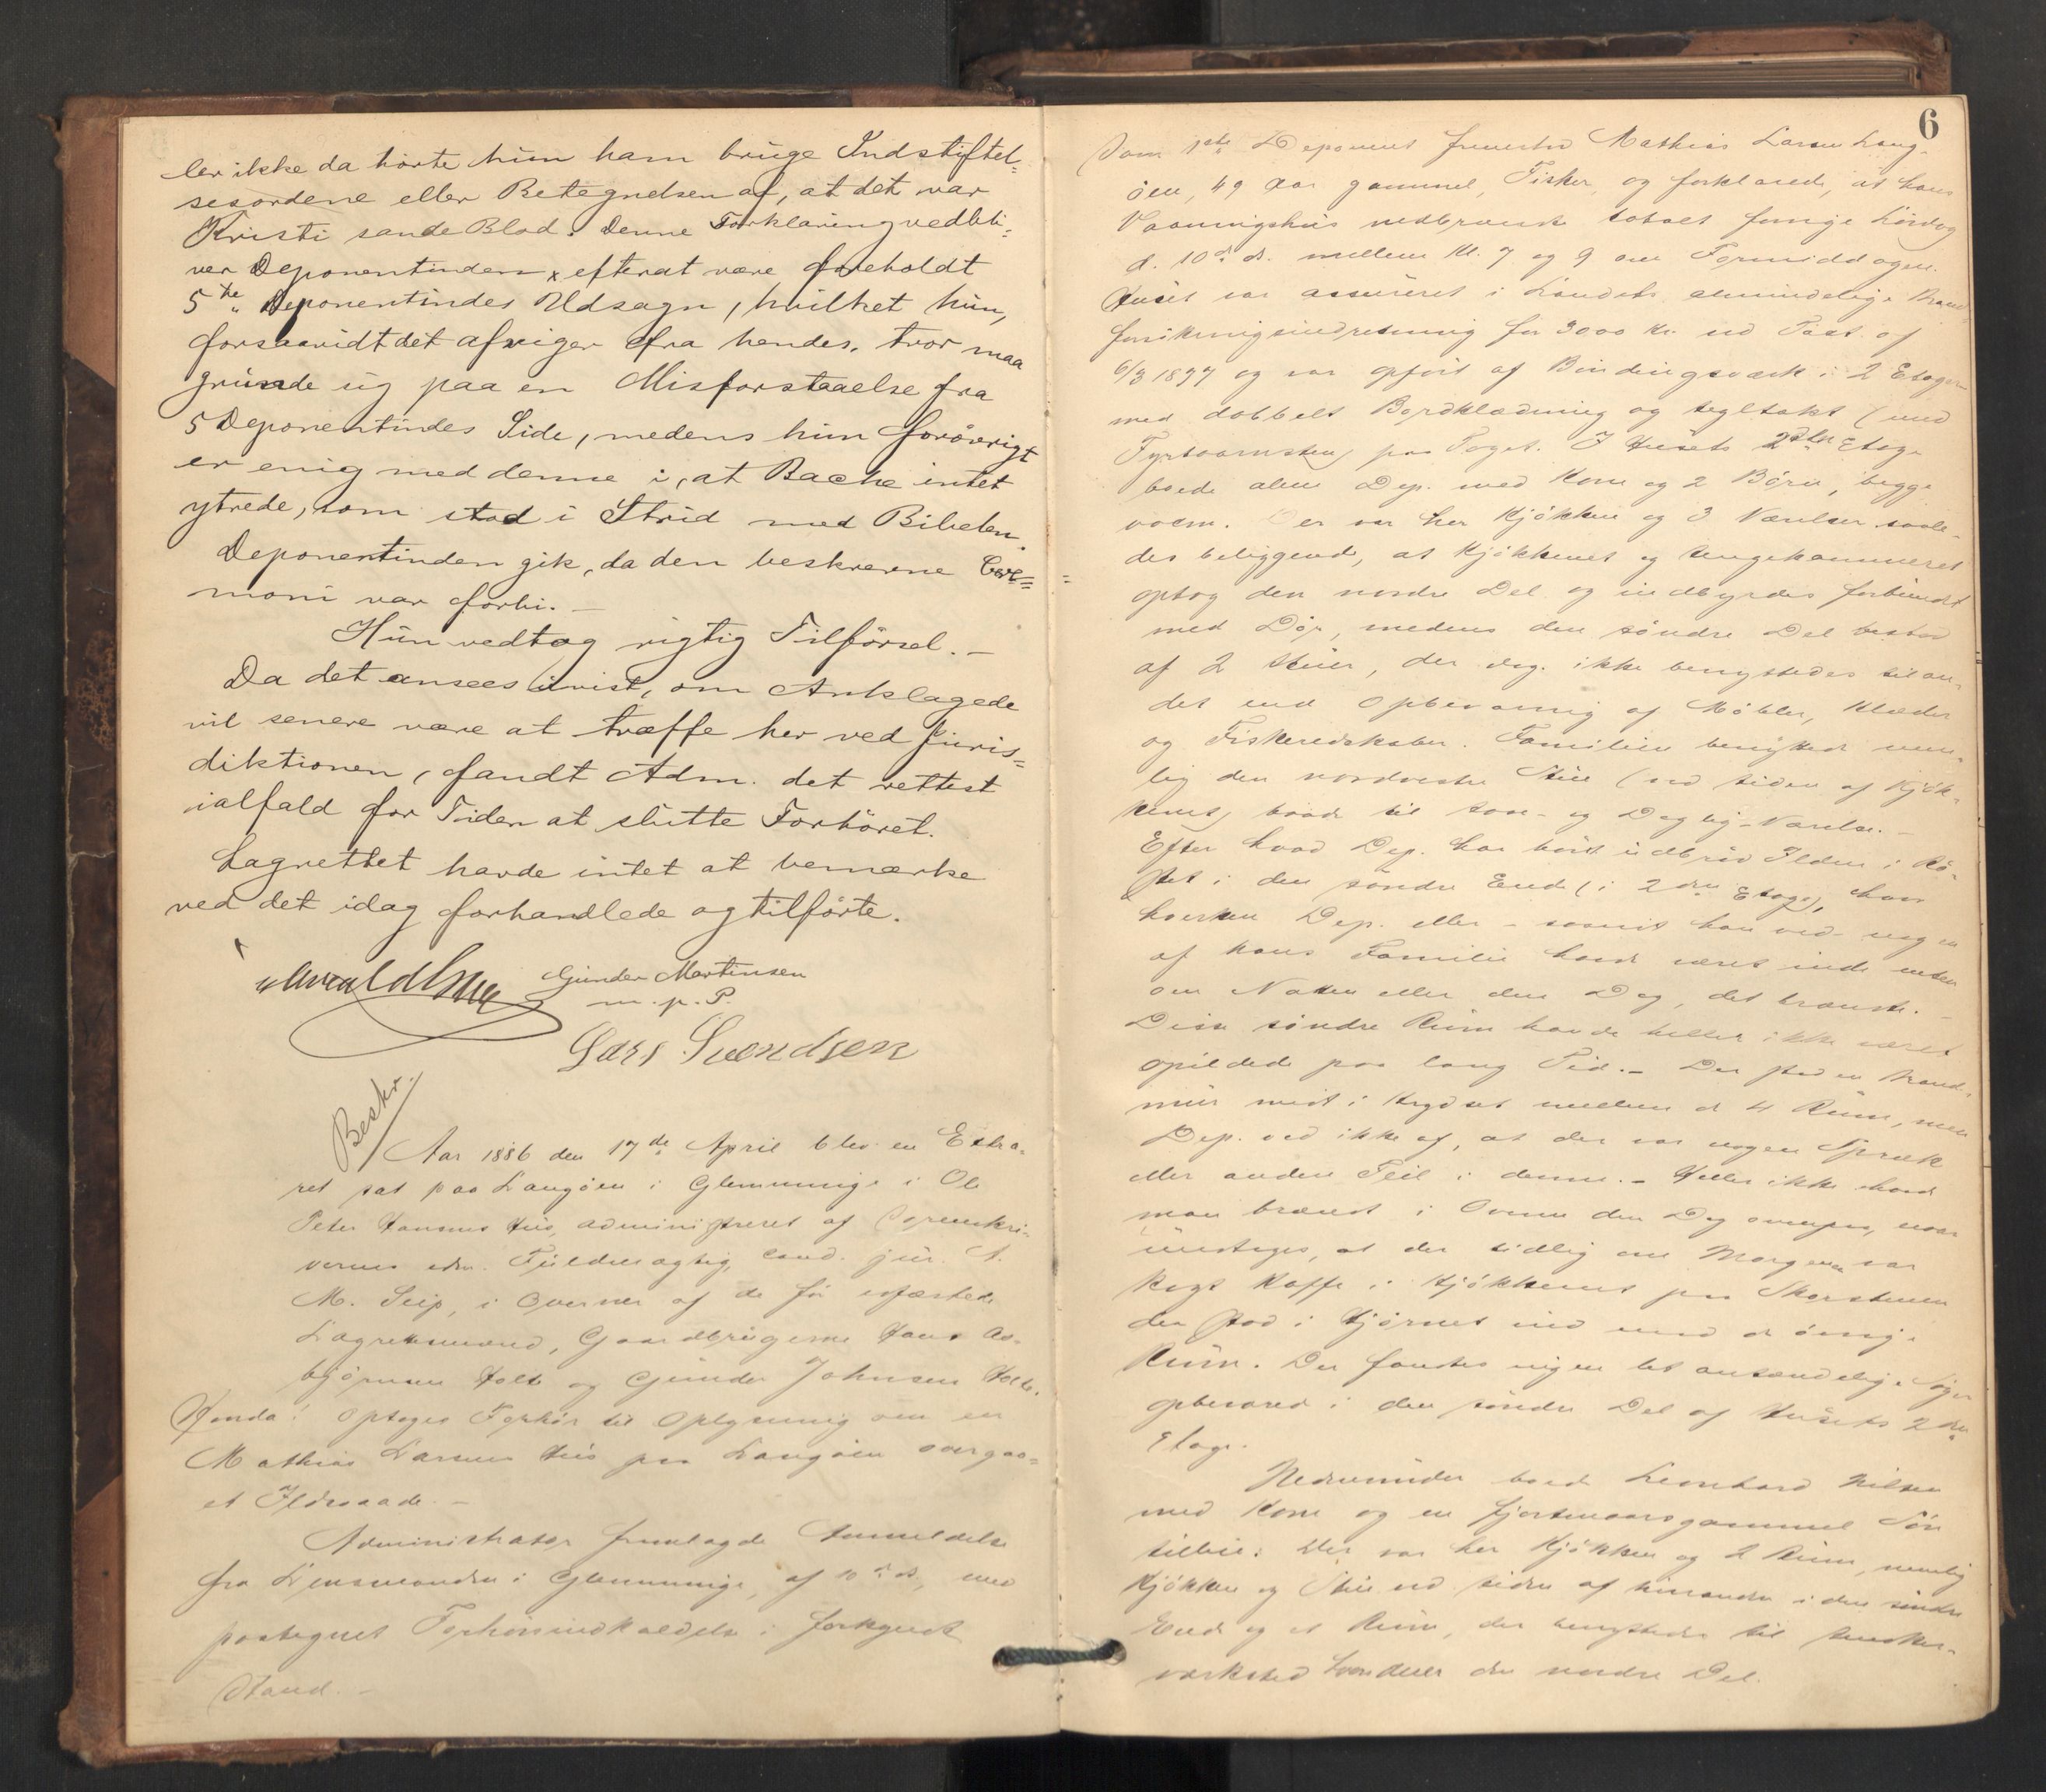 ler ikke da hørte hun ham bruge Indstiftel-
sesordene eller Betegnelsen af, at det var
Kristi sande Blod. Denne Forklaring vedbli-
ver Deponentinden, efterat være foreholdt
5te Deponentindes Udsagn, hvilket hun,
forsaavidt det afviger fra hendes, tror maa
grunde sig paa en Misforstaaelse fra
5 Deponentindes Side, medens hun forøvrigt
er enig med denne i, at Bache intet
ytrede, som stod i Strid med Bibelen.
Deponentinden gik, da den beskrevne Cere=
moni var forbi. –
Hun vedtog rigtig Tilførsel. –
Da det ansees uvist, om Anklagede
vil senere være at træffe her ved Juris=
diktionen, fandt Adm. det rettest
ialfald for Tiden at slutte Forhøret.
Lagrettet havde intet at bemærke
ved det idag forhandlede og tilførte.
Gunder Martinsen
m. p. P.
Lars Svendsen
Beskr.
Aar 1886 den 17de April blev en Extra-
ret sat paa Langøen i Glemminge i Ole
Peter Hansens Hus, administreret af Sorenskri-
verens edsv. Fuldmægtig, cand. jur. A.
M. Seip, i Overvær af de før edfæstede
Lagrettesmænd, Gaardbrugerne Hans As-
bjørnsen Holt og Gunder Johnsen Holte.
Hvorda: optoges Forhør til Oplysning om en
Mathias Larsens Hus paa Langøen overgaa-
et Ildsvaade. –
Administrator fremlagde Anmeldelse
fra Lensmanden i Glemminge, af 10de ds., med
paategnet Forhørsindkaldelse i forkyndt
Stand. –
6
Som 1ste Deponent fremstod Mathias Larsen Lang-
øen, 49 Aar gammel, Fisker, og forklarede, at hans
Vaaningshus nedbrændte totalt forrige Lørdag
d. 10de ds. mellem Kl. 7 og 9 om Formiddagen.
Huset var assureret i Landets almindelige Brand-
forsikringsindretning for 3000 Kr. ved Taxt af
6/3 1877 og var opført af Bindingsværk i 2 Etager
med dobbelt Bordklædning og tegltækt (med
paa Taget. I Husets 2den Etage
boede alene Dep. med Kone og 2 Børn, begge
voxne. Der var her Kjøkken og 3 Værelser saale-
des beliggende, at Kjøkkenet og Sengekammeret
optog den nordre Del og indbyrdes forbundet
med Dør, medens den søndre Del bestod
af 2 Stuer, der dog ikke benyttedes til an-
det end Opbevaring af Møbler, Klæder
og Fiskeredskaber. Familien benyttede nem-
lig den nordvestre Stue (ved Siden af Kjøk-
kenet) baade til Sove- og Daglig-Værelse. –
Efter hvad Dep. har hørt udbrød Ilden i Rø-
stet i den søndre Ende (i 2den Etage), hvor
hverken Dep. eller – saavidt han ved – nogen
af hans Familie havde været inde enten
om Natten eller den Dag, det brændte. –
Disse søndre Rum havde heller ikke været
opildede paa lang Tid. – Der stod en Brand-
mur midt i Krydset mellem de 4 Rum, men
Dep. ved ikke af, at der var nogen Spræk
eller anden Feil i denne. – Heller ikke havde
man brændt i Ovnen den Dag ovenpaa, naar
undtages, at der tidlig om Morgenen var
kogt Kaffe i Kjøkkenet paa Skorstenen
der stod i Hjørnet ind mod de øvrige
Rum. Der fandtes ingen let antændelige Sager
opbevaret i den søndre Del af Husets 2den
Etage.
Nedenunder boede Leonhard Nilsen
med Kone og en fjortenaarsgammel Søn
tilleie. Der var her Kjøkken og 2 Rum, nemlig
Kjøkken og Stue ved Siden af hinanden i den søndre
Ende og et Rum, der benyttedes til Snedker-
værksted hvorunder den nordre Del.